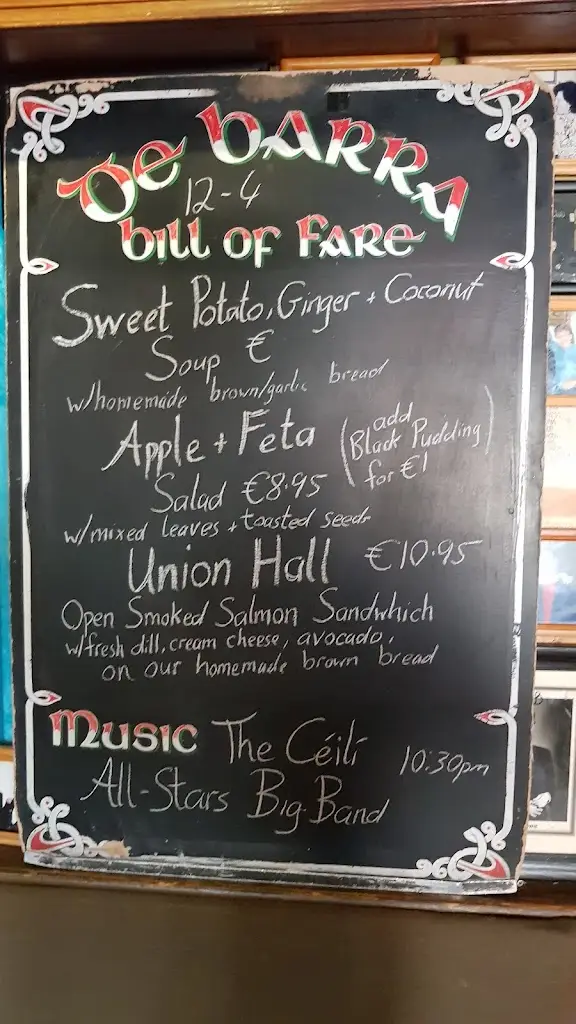 De Barra
12-4
Bill of Fare
Sweet Potato, Ginger + Coconut
Soup €
w/homemade brown/garlic bread
Apple + Feta
(add
Black Pudding)
for €1
Salad €8.95
w/mixed leaves + toasted seeds
Union Hall €10.95
Open Smoked Salmon Sandwhich
w/fresh dill, cream cheese, avocado,
on our homemade brown bread
Music The Céilí 10:30pm
All-Stars Big Band